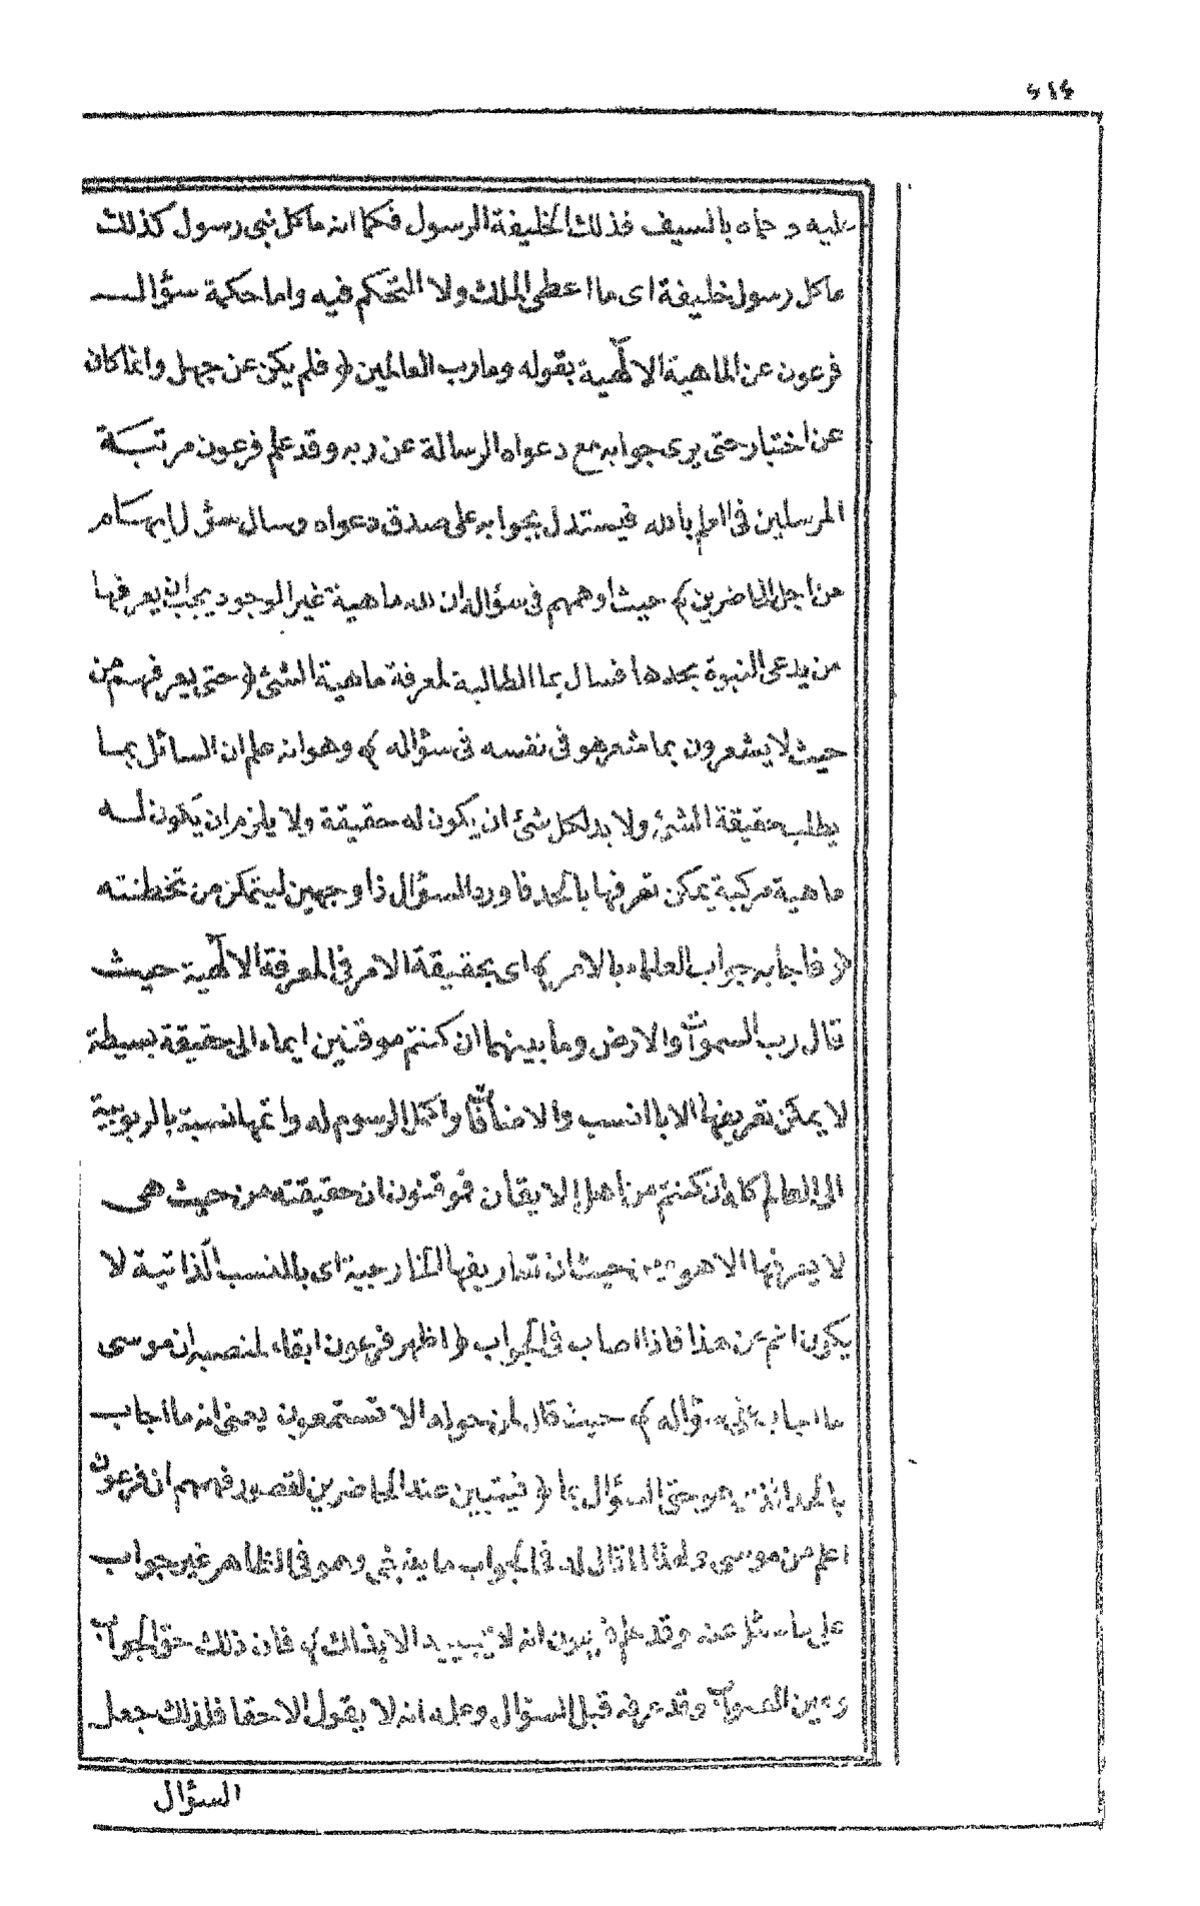 ٤١٤
عليه وحماه بالسيف فذلك الخليفة الرسول فكما انه ما كل نبى رسول كذلك
ما كل رسول خليفة اى ما اعطى الملك ولا التحكم فيه واما حكمة سؤال
فرعون عن الماهية الالٓهية بقوله وما رب العالمين ﴿ فلم يكن عن جهل وانما كان
عن اختبار حتى يرى جوابه مع دعواه الرسالة عن ربه وقد علم فرعون مرتبة
المرسلين فى العلم بالله فيستدل بجوابه على صدق دعواه وسال سؤال ايهام
من اجل الحاضرين ﴾ حيث اوهمهم فى سؤاله ان لله ماهية غير الوجود يجب ان يعرفها
من يدعى النبوة بحدها فسال بما الطالبة لمعرفة ماهية الشئ ﴿ حتى يعرفهم من
حيث لا يشعرون بما شعر هو فى نفسه فى سؤاله ﴾ وهو انه علم ان السائل بما
يطلب حقيقة الشئ ولا بد لكل شئ ان يكون له حقيقة ولا يلزم ان يكون له
ماهية مركبة يمكن تعرفها بالحد فاورد السؤال ذا وجهين ليتمكن من تخطئته
﴿ فاجابه جواب العلماء بالامر ﴾ اى بحقيقة الامر فى المعرفة الالٓهية حيث
قال رب السموات والارض وما بينهما ان كنتم موقنين ايماء الى حقيقة بسيطة
لا يمكن تعريفها الا بالنسب والاضافات واكمل الرسوم له واتمها نسبة بالربوبية
الى العالم كله ان كنتم من اهل الايقان فموقنون ان حقيقته من حيث هى
لا يعرفها الا هو حيث ان تعاريفها الخارجية اى بالنسب الذاتية لا
يكون اتم عن هذا فاذا اصاب فى الجواب ﴿ اظهر فرعون ابقاء لمنصبه ان موسى
ما اجابه على سؤاله ﴾ حيث قال لمن حوله الا تستمعون يعنى انه ما اجاب
بالحد الذى هو حق السؤال بما ﴿ فيتبين عند الحاضرين لقصور فهمهم ان فرعون
اعلم من موسى ولهذا لما قال له فى الجواب ما ينبغى وهو فى الظاهر غير جواب
على ما سئل عنه وقد علم فرعون انه لا يجيبه الا بذلك ﴾ فان ذلك حق الجواب
وعين الصواب وقد عرفه قبل السؤال وعلمه انه لا يقول الا حقا فلذلك جعل
السؤال